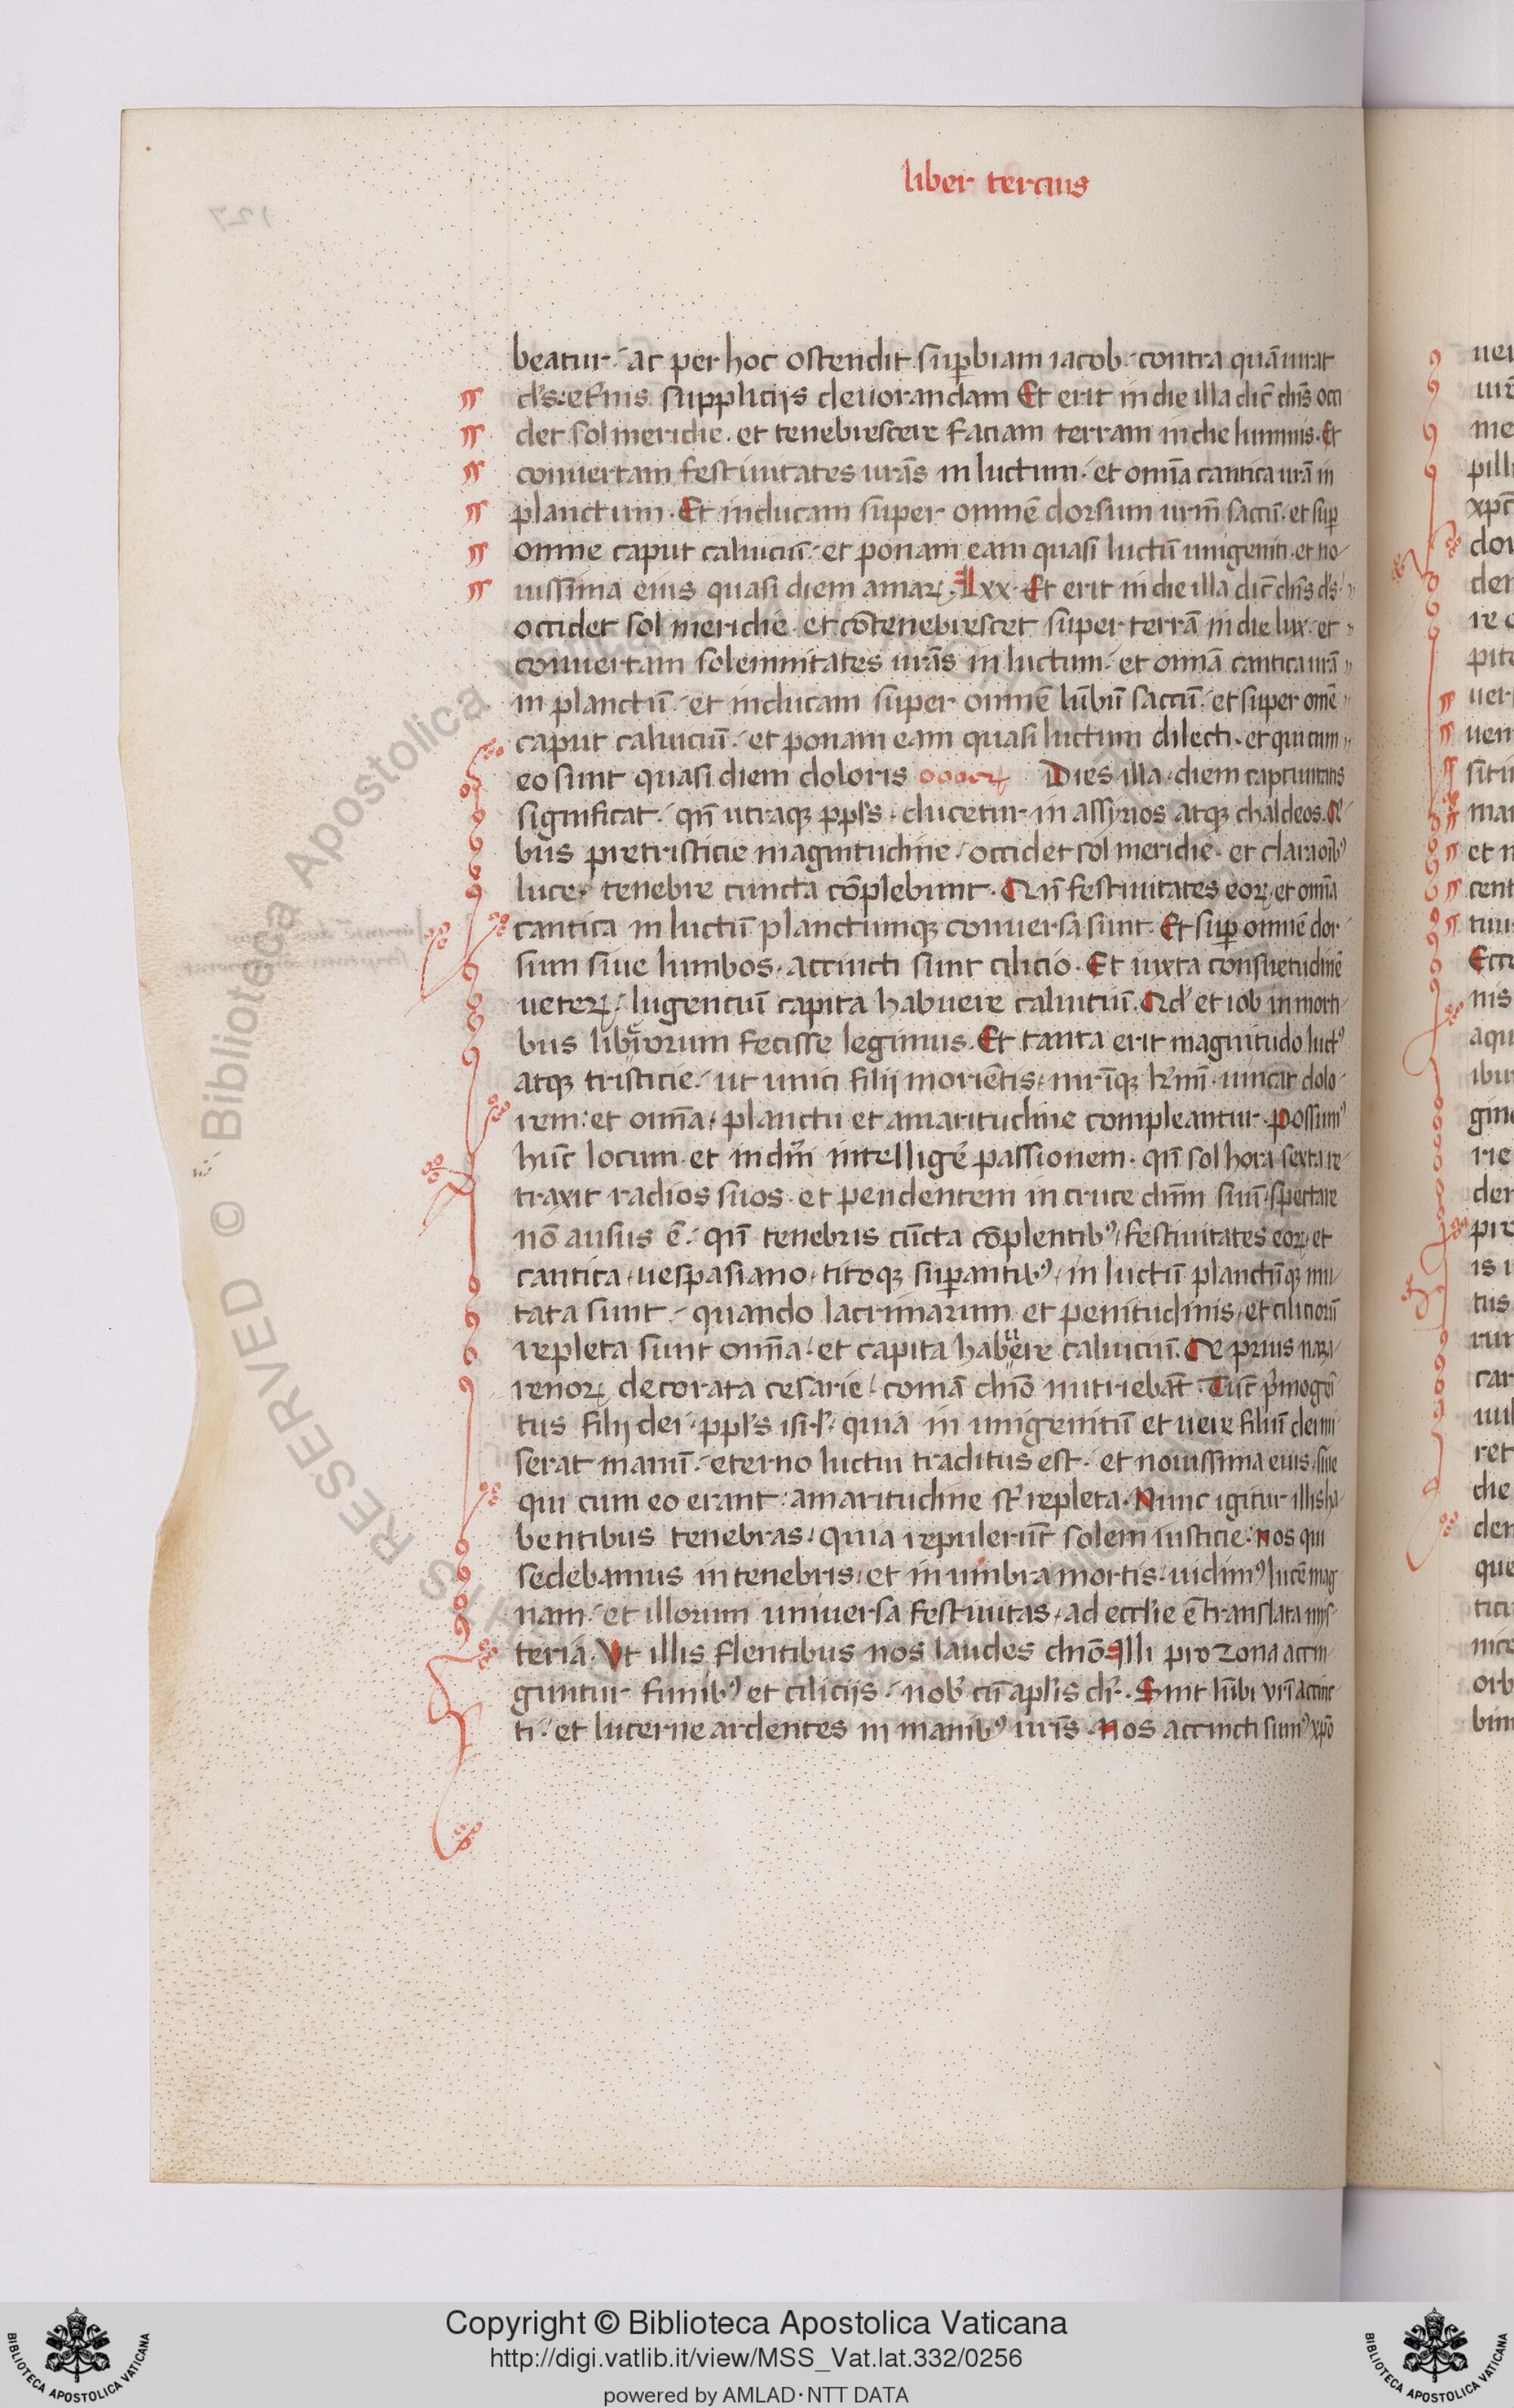 liber tercius
beatur. ac per hoc ostendit sup̱biam iacob. contra quā iurat
d's. et'nis suppliciis deuorandam Et erit in die illa dic̄ dn̄s occi
det sol meridie. et tenebrescere faciam terram in die luminis. Et
conuertam festiuitates ur̄as in luctum. et omīa cantica ur̄a in
planctum. Et inducam super omnē dorsum ur̄m saccū. et sup̱
omne caput caluiciū. et ponam eam quasi luctū unigeniti. et no
uissima eius quasi diem amarꝝ. lxx. Et erit in die illa dic̄ dn̄s d's
occidet sol meridie. et cōtenebrescet super terrā in die lux. et
conuertam solemnitates ur̄as in luctum. et omīa cantica ur̄a
in planctū. et inducam super omnē lūbū saccū. et super omē
caput caluiciū. et ponam eam quasi luctum dilecti. et qui cum
eo sunt quasi diem doloris Dies illa. diem captiuitatis
significat. qn̄ utraqꝫ ppl's. ducetur in assyrios atqꝫ chaldeos.
bus pre tristicie magnitudine. occidet sol meridie. et clara oībꝰ
luce. tenebre cuncta cōplebunt. festiuitates eoꝝ. et omīa
cantica in luctū planctumqꝫ conuersa sunt. Et sup̱ omnē dor
sum siue lumbos. accincti sunt cilicio. Et iuxta consuetudinē
ueterꝝ. lugenciū capita habuere caluiciū. Qd' et iob in morti
bus librorum fecisse legimus. Et tanta erit magnitudo luctꝰ
atqꝫ tristicie. ut unici filii moriētis. nīqꝫ ſ. uincat dolo
rem: et omīa. planctu et amaritudine compleantur. possumꝰ
hūc locum. et in dn̄i intelligē passionem. qn̄ sol hora sexta re
traxit radios suos. et pendentem in cruce dn̄m suū. spectare
nō ausus ē. qn̄ tenebris cūcta cōplentibꝰ. festiuitates eoꝝ. et
cantica. uespasiano. titoqꝫ sup̱antibꝰ. in luctū planctūqꝫ mu
tata sunt. quando lacrimarum et penitudinis. et ciliciorū
repleta sunt omīa. et capita habuere caluiciū. prius naza
renoꝝ decorata cesarie. comā dn̄o nutriebāt. Tūc p'mogēi
tus filij dei. ppl's isr'l. quia in unigenitū et uere filiū dei mi
serat manū. eterno luctui traditus est. et nouissima eius. siue
qui cum eo erant. amaritudine st̄ repleta. Nunc igitur illis ha
bentibus tenebras. quia repulerūt solem iusticie. nos qui
sedebamus in tenebris. et in umbra mortis. uidimꝰ lucē mag
nam. et illorum uniuersa festiuitas. ad ecclīe ē translata mys
teria. Vt illis flentibus nos laudes dn̄o Illi pro zona accin
guntur funibꝰ et ciliciis. nob' cū apl'is dr̄. Sint lūbi vr̄i accinc
ti. et lucerne ardentes in manibꝰ ur̄is. Nos accincti sumꝰ xp̄o
Copyright © Biblioteca Apostolica Vaticana
http://digi.vatlib.it/view/MSS_Vat.lat.332/0256
powered by AMLAD·NTT DATA